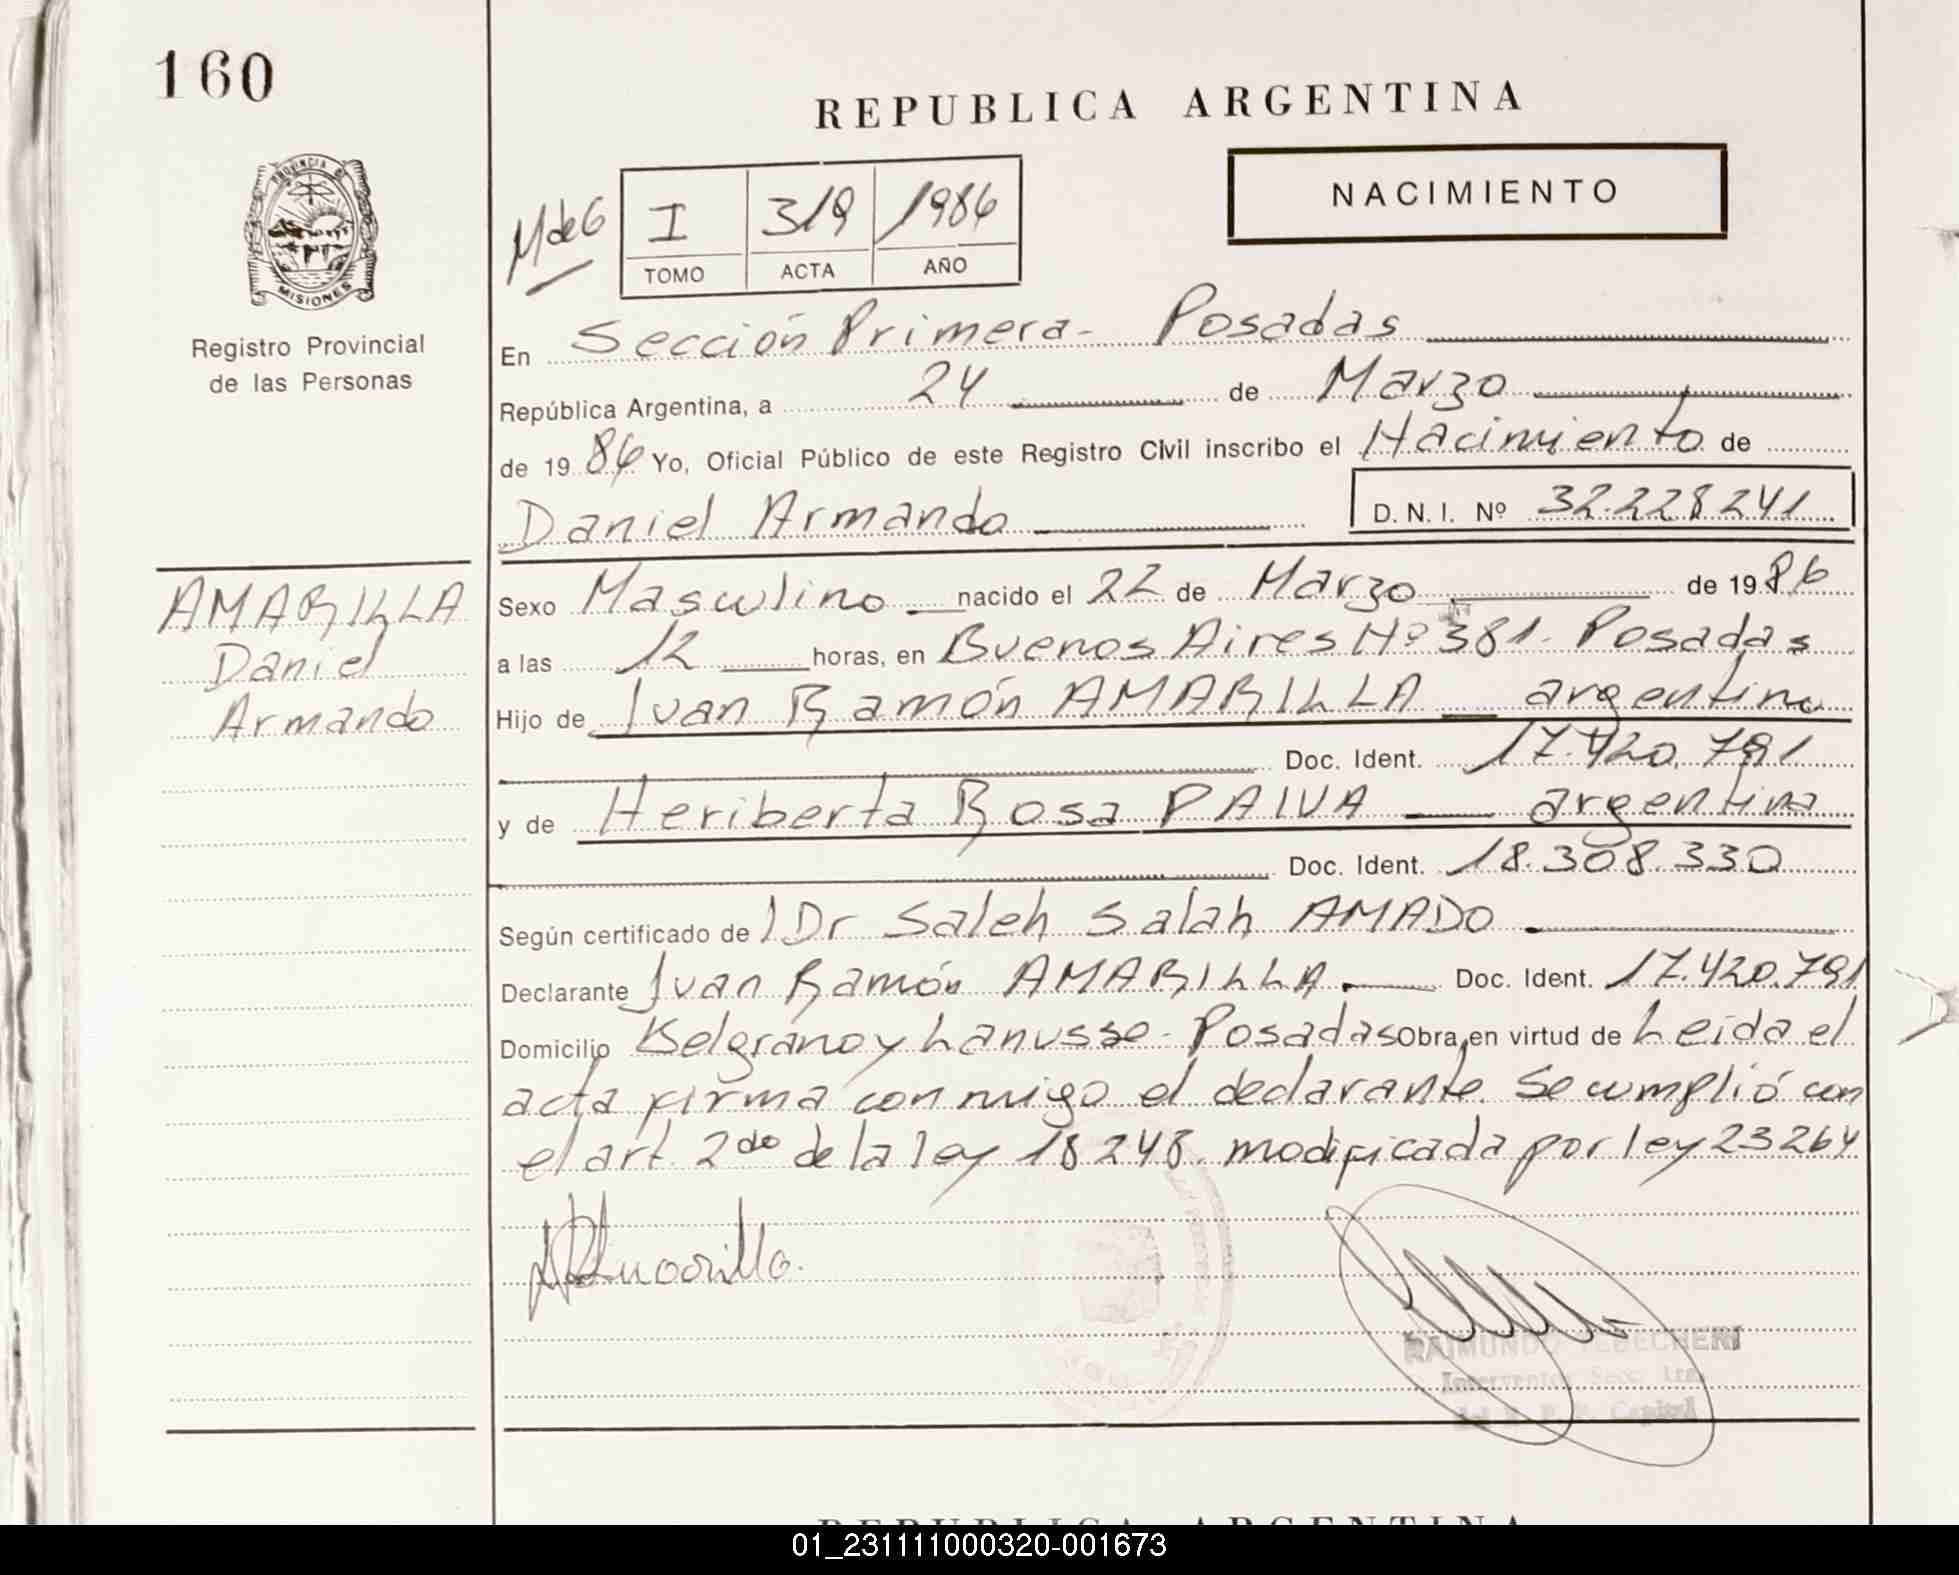 160
REPUBLICA ARGENTINA
NACIMIENTO
M de G
I 319 1986
TOMO ACTA AÑO
PROVINCIA DE
MISIONES
Registro Provincial
de las Personas
En Sección Primera - Posadas
República Argentina, a 24 de Marzo
de 19 86 Yo, Oficial Público de este Registro Civil inscribo el Nacimiento de
Daniel Armando D. N. I. Nº 32.228.241
AMARILLA
Daniel
Armando
Sexo Masculino nacido el 22 de Marzo de 19 86
a las 12 horas, en Buenos Aires Nº 381 - Posadas
Hijo de Juan Ramón AMARILLA argentino
Doc. Ident. 17.420.791
y de Heriberta Rosa PAIVA argentina
Doc. Ident. 18.308.330
Según certificado de l Dr Saleh Salah AMADO
Declarante Juan Ramón AMARILLA Doc. Ident. 17.420.791
Domicilio Belgrano y Lanusse - Posadas Obra en virtud de Leida el
acta firma conmigo el declarante. Se cumplió con
el art. 2do de la ley 18248. modificada por ley 23264
RAIMUNDO
Interventor Secc. 1ra.
Capital
REPUBLICA ARGENTINA
01_231111000320-001673